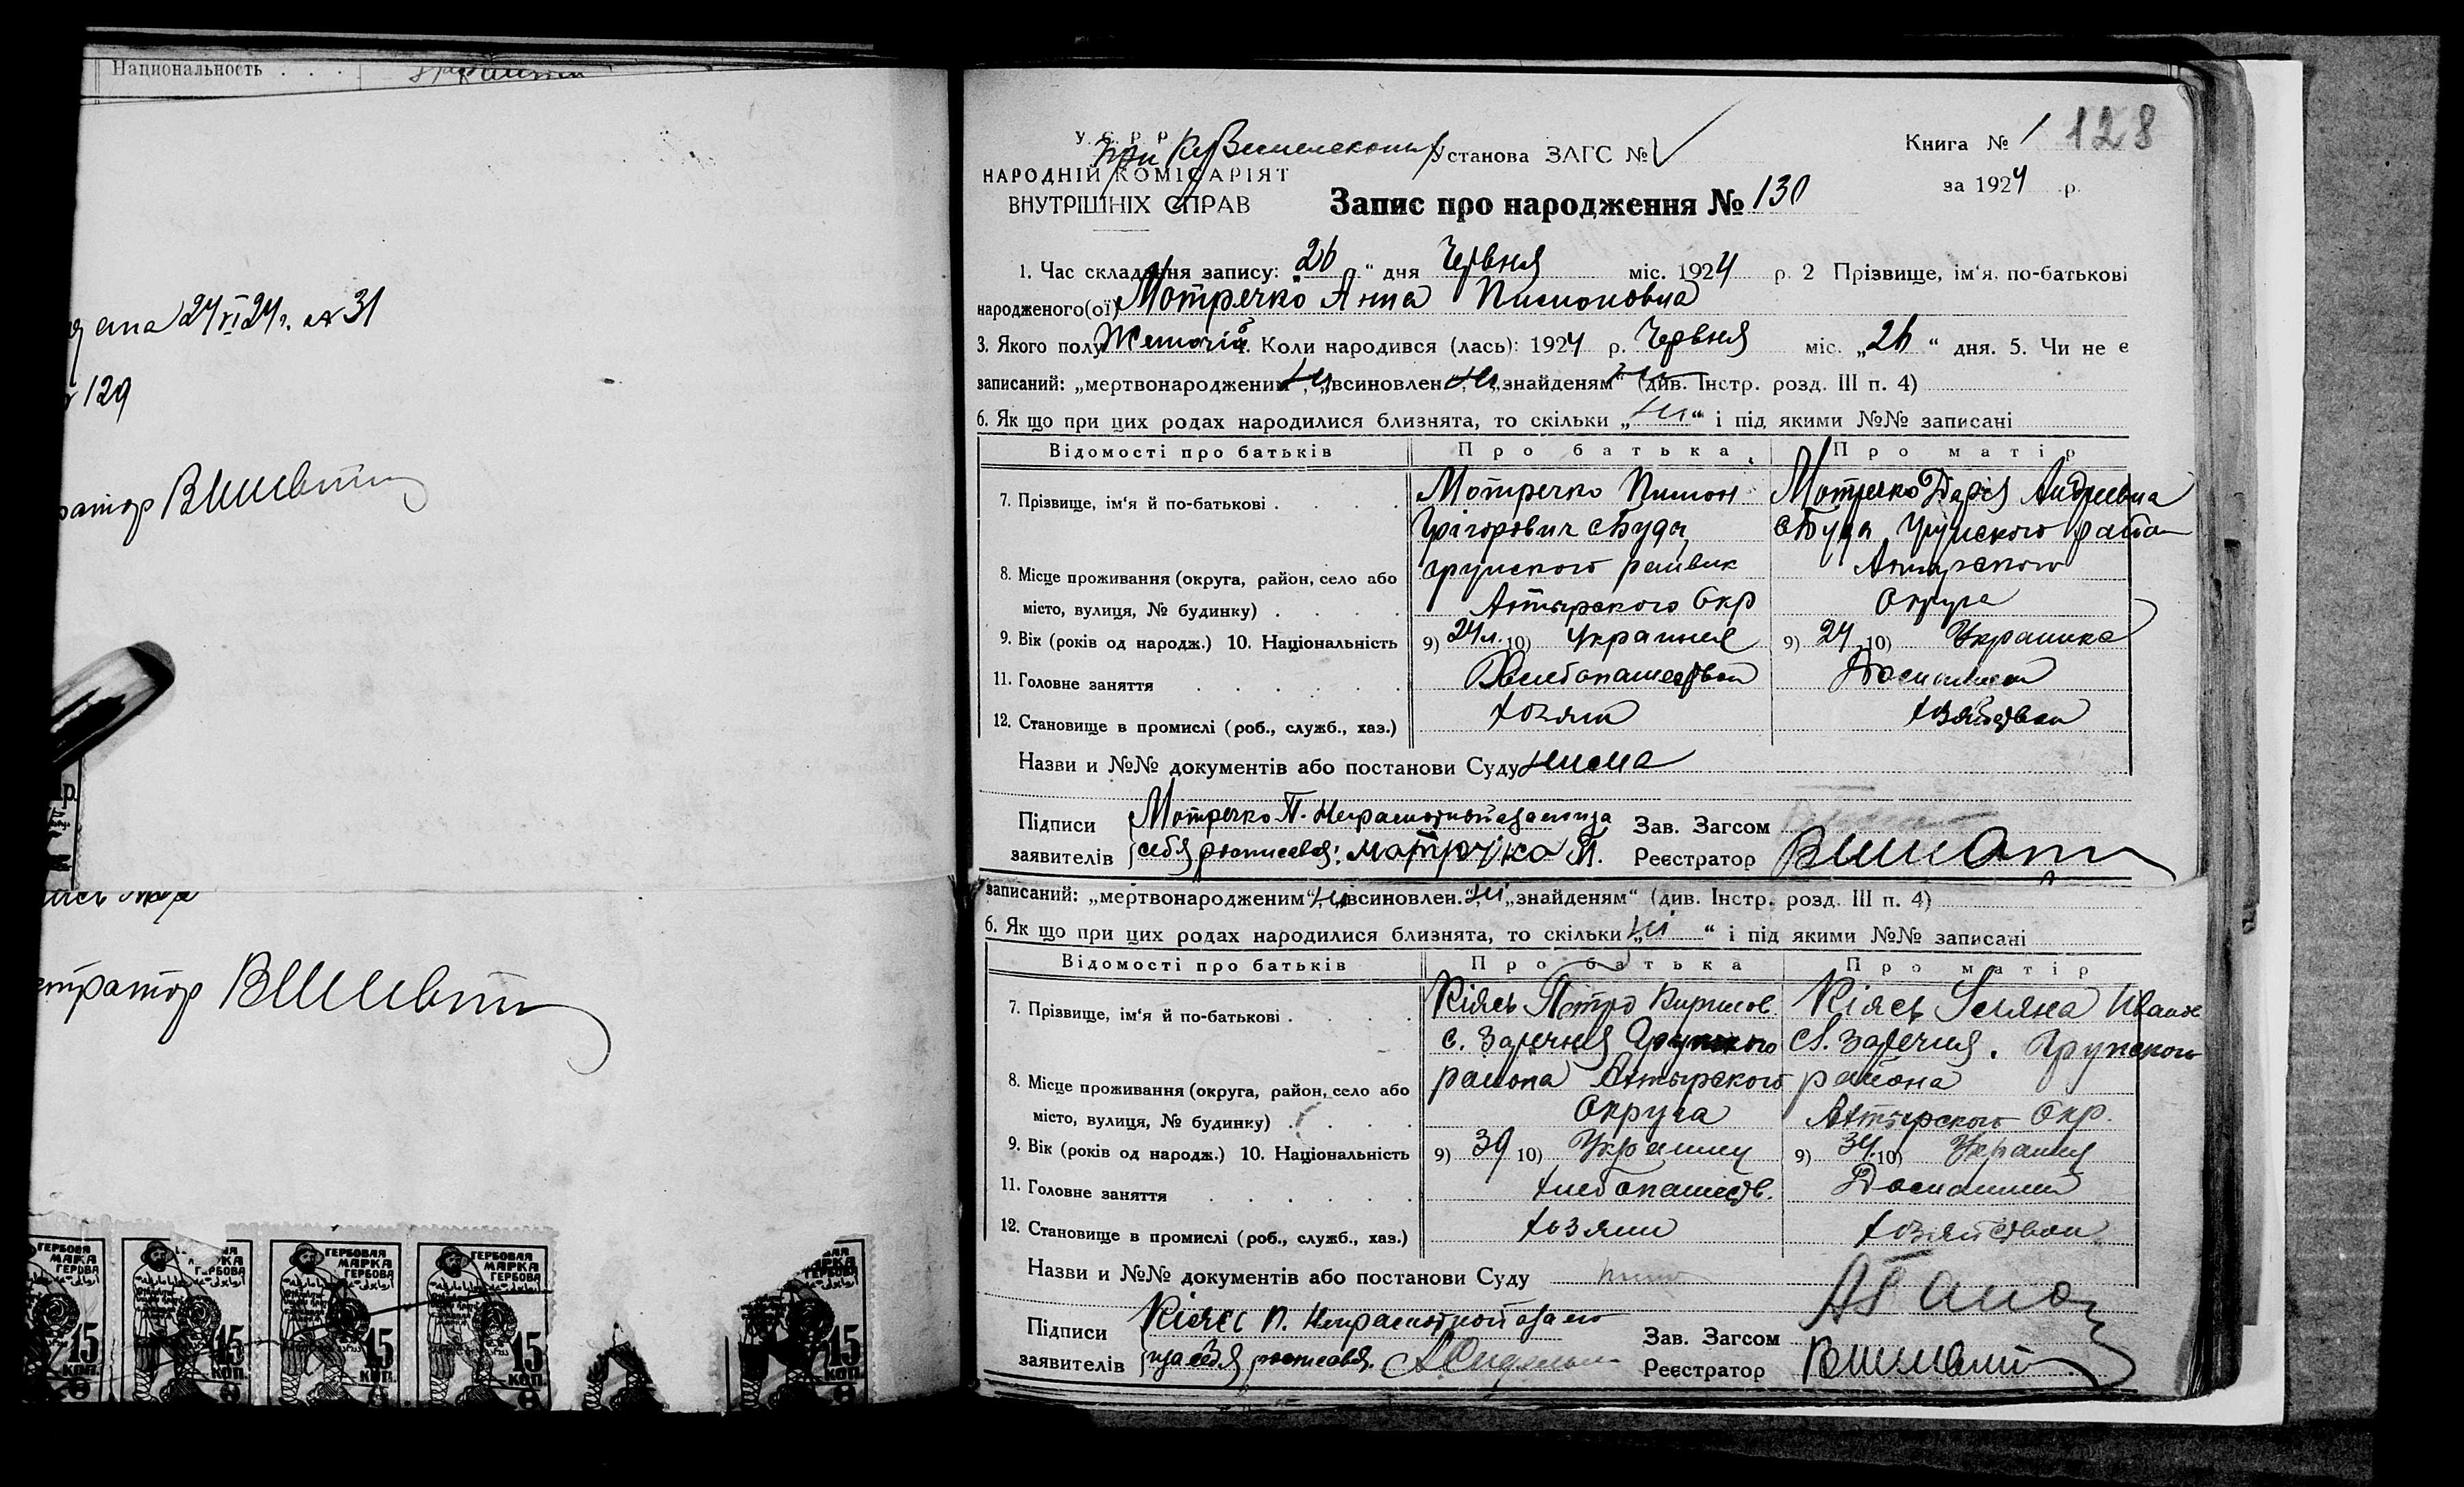 Национальность . . .
ана 24/VI 24 г. № 31
129
ратор
етратор
ГЕРБОВАЯ
МАРКА
ГЕРБОВА
15
КОП.
ГЕРБОВАЯ
МАРКА
ГЕРБОВА
15
КОП.
У. С. Р. Р.
НАРОДНІЙ КОМІСАРІЯТ
ВНУТРІШНІХ СПРАВ
при
Установа ЗАГС №
Книга № 1
128
за 1924 р.
Запис про народження № 130
1. Час складання запису: „26“ дня Червня міс. 1924 р. 2 Прізвище, ім'я, по-батькові
народженого(ої) Мотречко Анна Пимоновна
3. Якого полу Женочій 4. Коли народився (лась): 1924 р. Червня міс. „26“ дня. 5. Чи не є
записаний: „мертвонародженим“, ні „всиновлен“, ні „знайденям“ (див. Інстр. розд. III п. 4)
6. Як що при цих родах народилися близнята, то скільки „ні“ і під якими №№ записані
Відомості про батьків Про батька Про матір
7. Прізвище, ім'я й по-батькові . . . . Мотречко Пимон Мотречко Дарья Андреевна
Грігорович с Буда с Буда Грунского района
8. Місце проживання (округа, район, село або грунского райвик Ахтырского
місто, вулиця, № будинку) . . . . Ахтырского Окр Округа
9. Вік (років од народж.) 10. Національність 9) 24 л. 10) Украинец 9) 24 10) Украинка
11. Головне заняття . . . . . . Хлебопашество Домашнем
12. Становище в промислі (роб., служб., хаз.) хозяин хозяйством
Назви и №№ документів або постанови Суду нима
Підписи Мотречко П. Неграмотный за него Зав. Загсом
заявителів себя росписався: Мотречко П. Реєстратор
записаний: „мертвонародженим“, ні „всиновлен.“, ні „знайденям“ (див. Інстр. розд. III п. 4)
6. Як що при цих родах народилися близнята, то скільки „ні“ і під якими №№ записані
Відомості про батьків Про батька Про матір
7. Прізвище, ім'я й по-батькові . . . . Кіясь Петро Кирилов. Кіясь Уляна Иванов
с. Заречня Грунского с. Заречня. Грунского
8. Місце проживання (округа, район, село або района Ахтырского района
місто, вулиця, № будинку) . . . . Округа Ахтырского Окр.
9. Вік (років од народж.) 10. Національність 9) 39 10) Украинец 9) 34 10) Украинец
11. Головне заняття . . . . . . хлебопашеств. Домашним
12. Становище в промислі (роб., служб., хаз.) хозяин хозяйством
Назви и №№ документів або постанови Суду
Підписи Кіясь П. Неграмотной за его Зав. Загсом
заявителів за себя росписався. Реєстратор